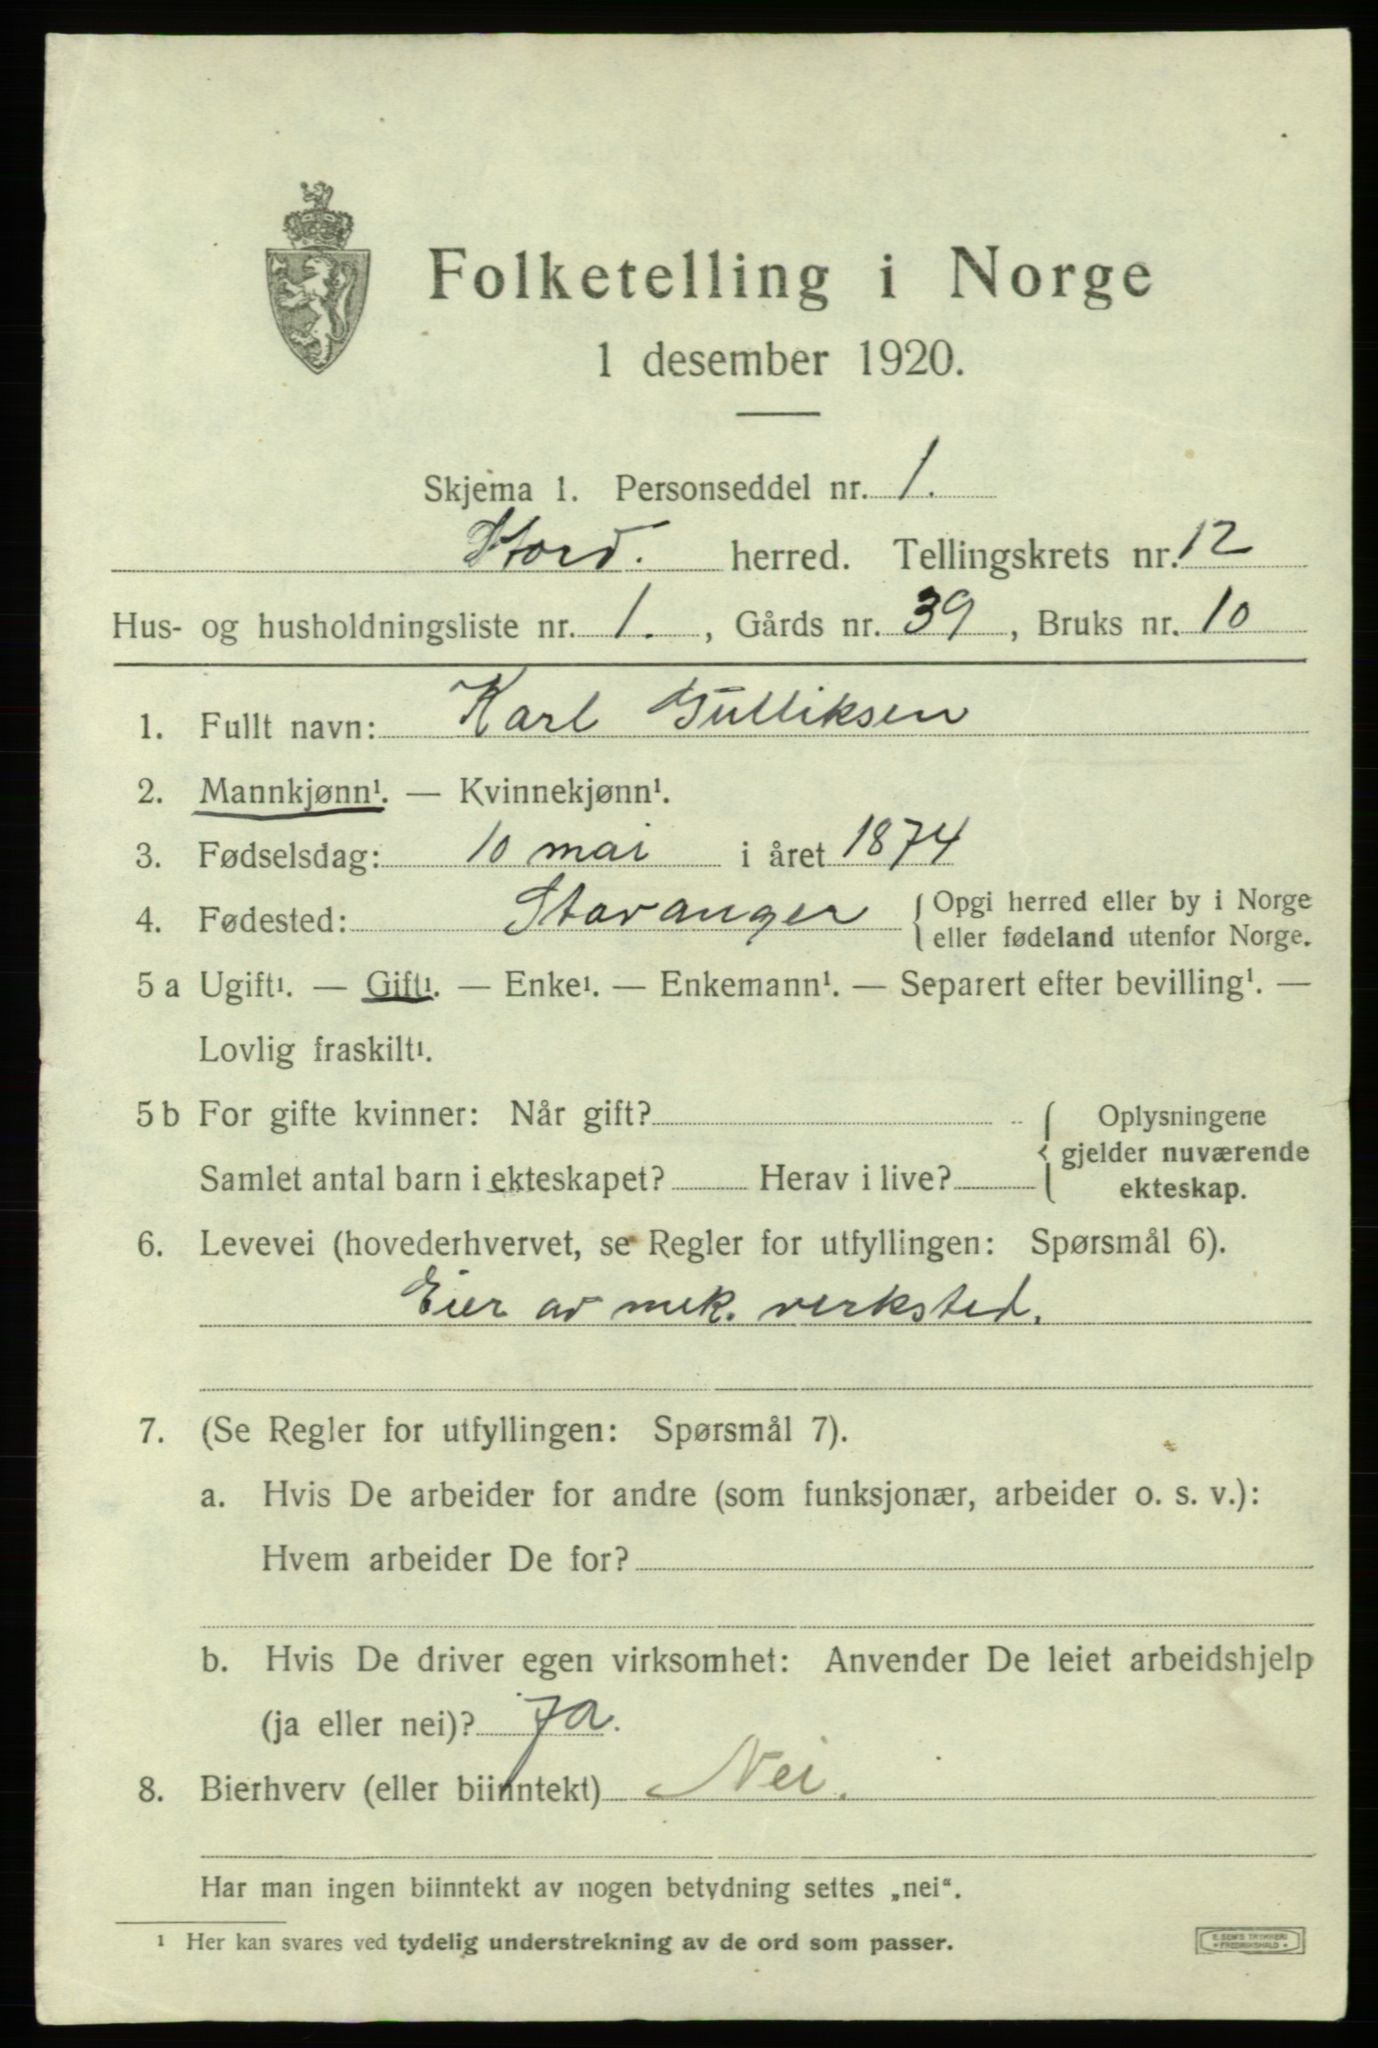 Folketelling i Norge
1 desember 1920.
Skjema 1. Personseddel nr. 1.
Stord. herred. Tellingskrets nr. 12
Hus- og husholdningsliste nr. 1. , Gårds nr. 39 , Bruks nr. 10
1. Fullt navn: Karl Gulliksen
2. Mannkjønn¹. — Kvinnekjønn¹.
3. Fødselsdag: 10 mai i året 1874
4. Fødested: Stavanger { Opgi herred eller by i Norge
eller fødeland utenfor Norge.
5 a Ugift¹. — Gift¹. — Enke¹. — Enkemann¹. — Separert efter bevilling¹. —
Lovlig fraskilt¹.
5 b For gifte kvinner: Når gift? { Oplysningene
gjelder nuværende
Samlet antal barn i ekteskapet? Herav i live? ekteskap.
6. Levevei (hovederhvervet, se Regler for utfyllingen: Spørsmål 6).
Eier av mek. verksted.
7. (Se Regler for utfyllingen: Spørsmål 7).
a. Hvis De arbeider for andre (som funksjonær, arbeider o. s. v.):
Hvem arbeider De for?
b. Hvis De driver egen virksomhet: Anvender De leiet arbeidshjelp
(ja eller nei)? Ja.
8. Bierhverv (eller biinntekt) Nei.
Har man ingen biinntekt av nogen betydning settes „nei“.
¹ Her kan svares ved tydelig understrekning av de ord som passer.
E. SEM'S TRYKKERI
* FREDRIKSHALD *